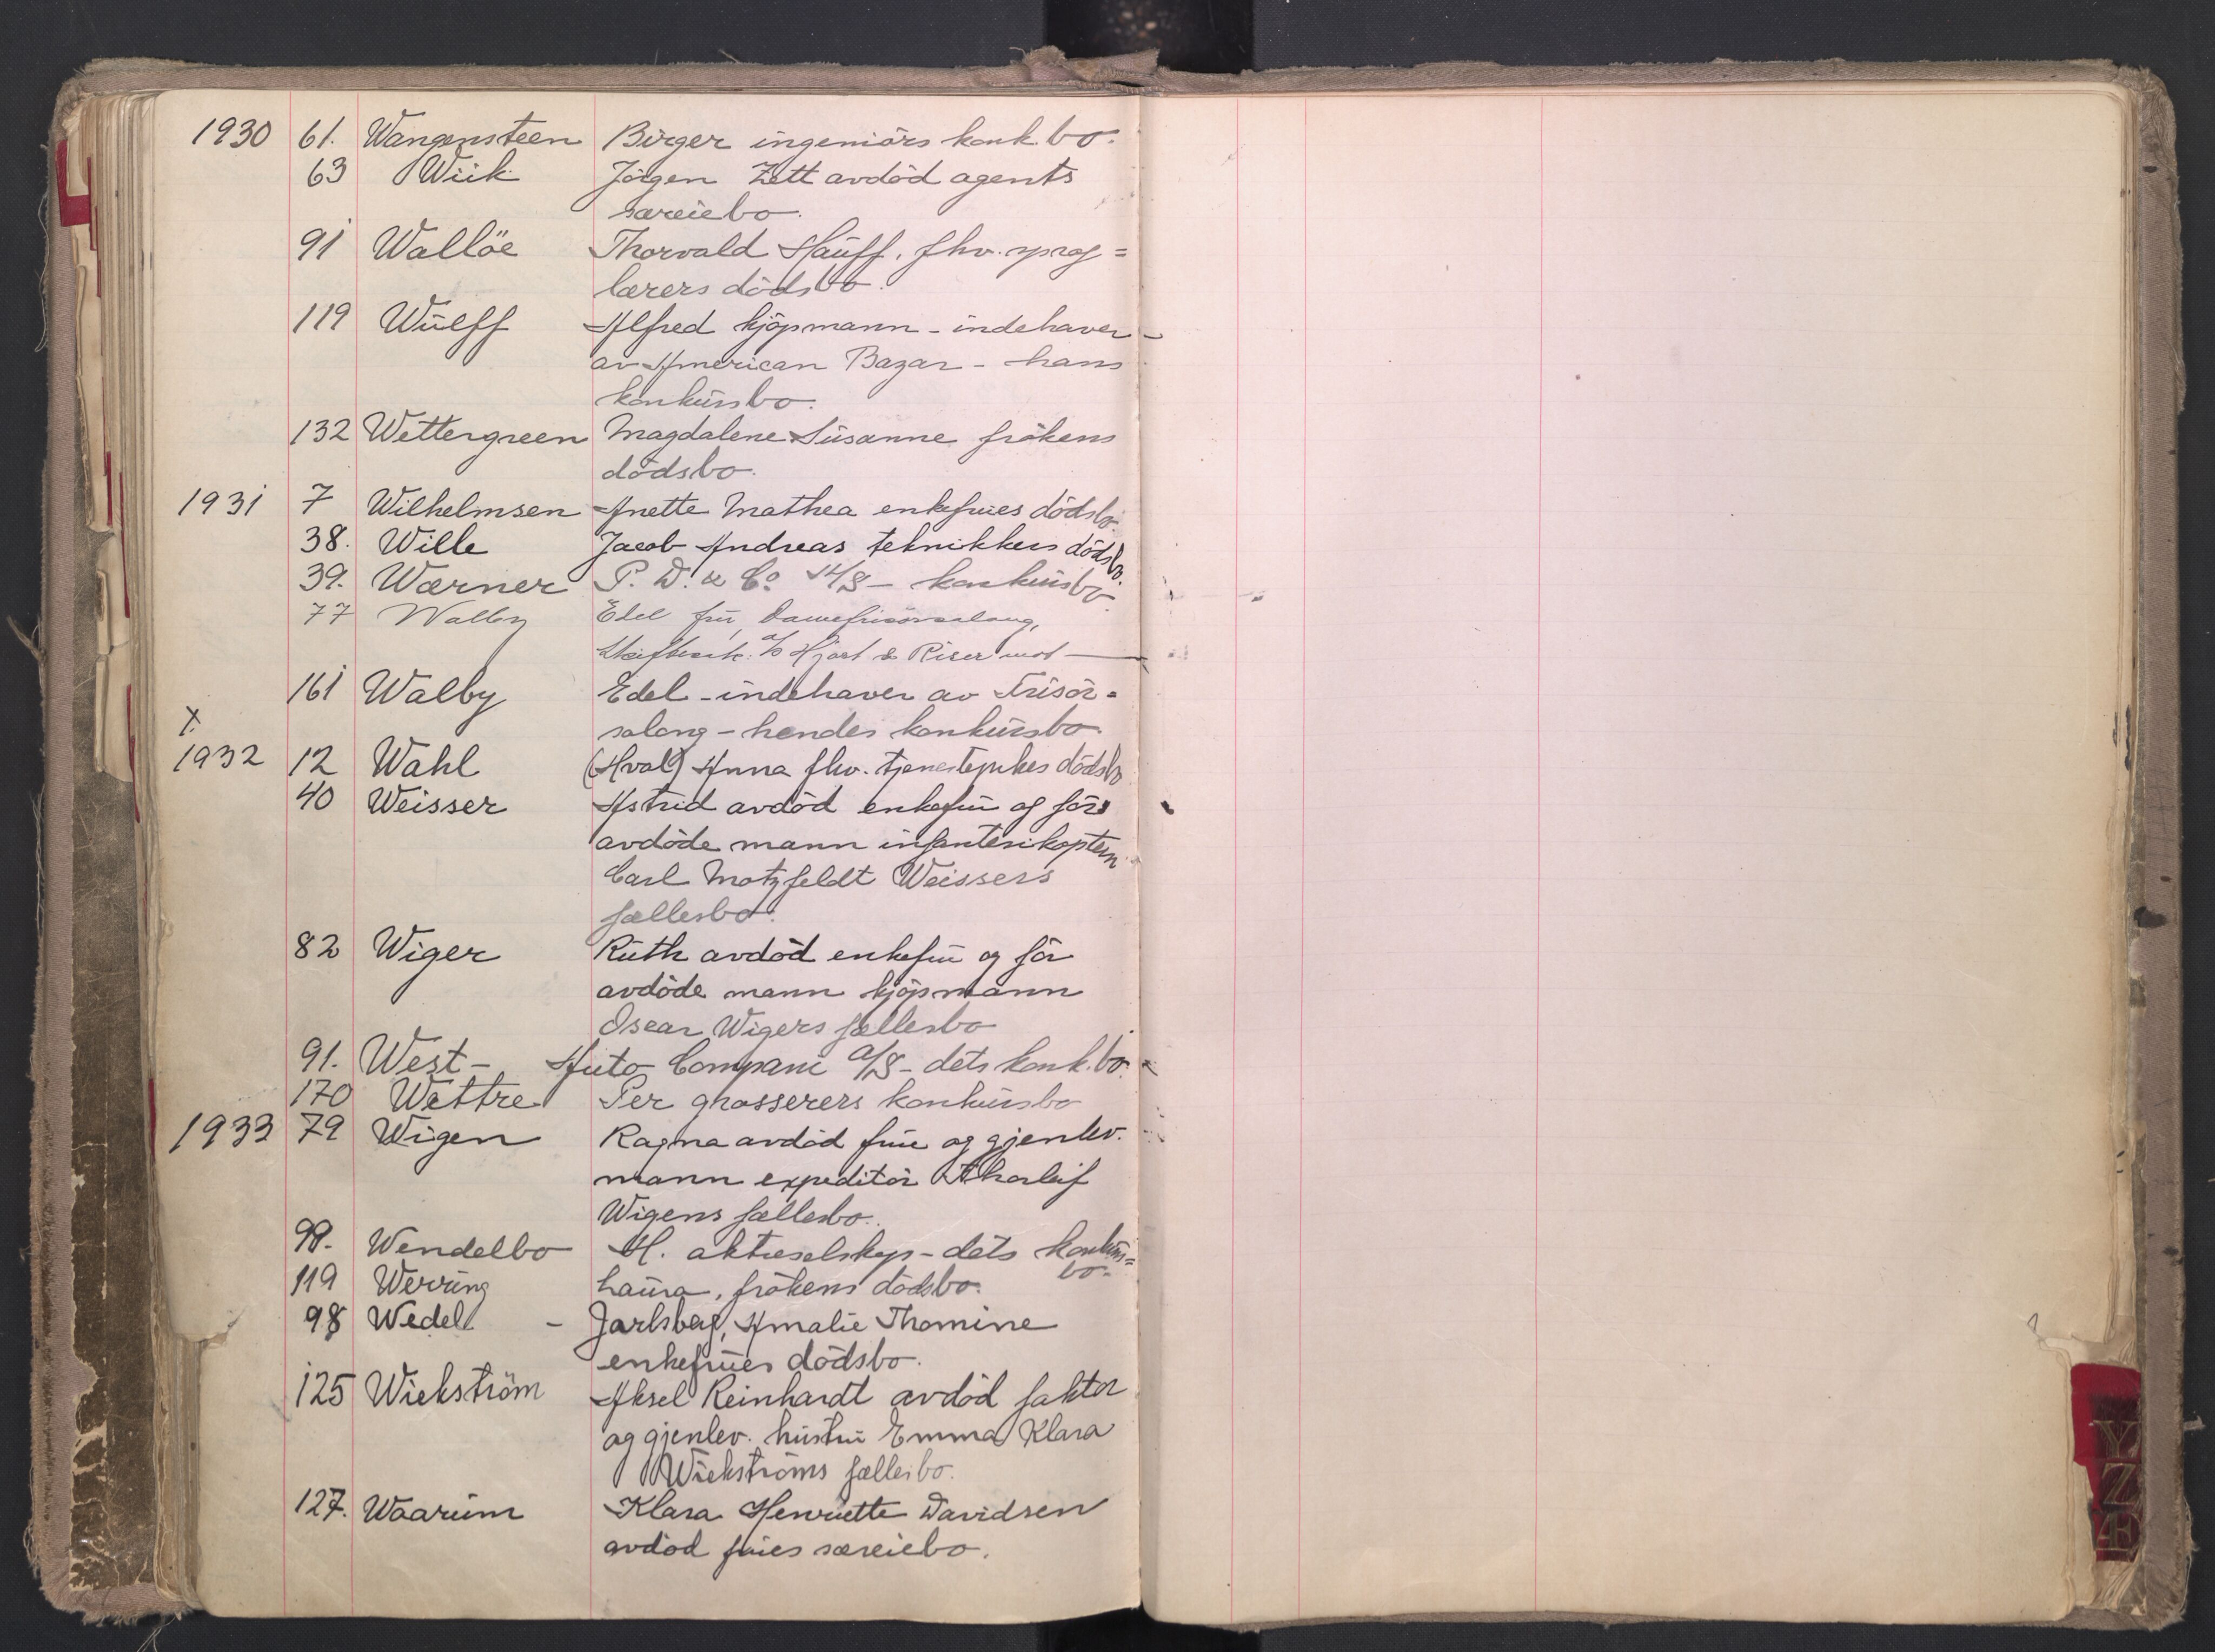 1930 61. Wangensteen Birger ingeniörs konk. bo.
63 Wiik Jörgen Zett avdöd agents
særeiebo.
91 Wallöe Thorvald Hauff, fhv. sprog=
lærers dödsbo.
119 Wulff Alfred kjöpmann - indehaver
av American Bazar - hans
konkursbo.
132 Wettergreen Magdalene Susanne frökens
dödsbo.
1931 7 Wilhelmsen Anette Mathea enkefrues dödsbo.
38. Wille Jacob Andreas teknikkers dödsbo.
39. Wærner P. W. & Co A/S - konkursbo.
77 Walby Edel fru, Damefrisörsalong,
Skiftesak: A/S Hjort & Riser mot —
161 Walby Edel - indehaver av Frisör-
salong - hendes konkursbo.
X.
1932 12 Wahl (Hval) Anna fhv. tjenestepikes dödsbo
40 Weisser Astrid avdöd enkefru og för
avdöde mann infanterikaptein
Carl Motzfeldt Weissers
fællesbo.
82 Wiger Ruth avdöd enkefru og för
avdöde mann kjöpmann
Oscar Wigers fællesbo
91. West - Auto Compani A/S - dets konk. bo.
170 Wettre Per grosserers konkursbo
1933 79 Wigen Ragna avdöd frue og gjenlev.
mann expeditör Thorleif
Wigens fællesbo.
98. Wendelbo H. aktieselskap - dets konkurs=
bo.
119 Werring Laura, frökens dödsbo.
98 Wedel - Jarlsberg, Amalie Thomine
enkefrues dödsbo.
125 Wickström Aksel Reinhardt avdöd faktor
og gjenlev. hustru Emma Klara
Wickströms fællesbo.
127. Waarum Klara Henriette Davidsen
avdöd frues særeiebo.
Y
Z
Æ